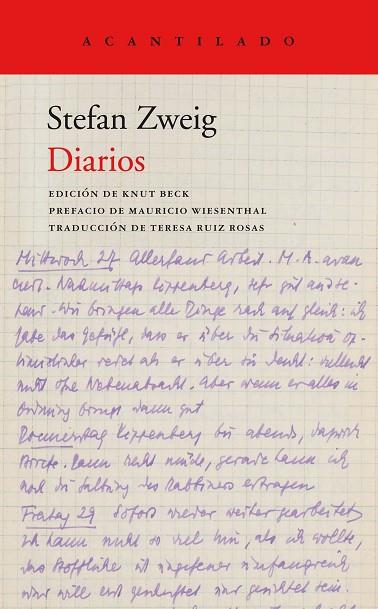 ACANTILADO
Stefan Zweig
Diarios
EDICIÓN DE KNUT BECK
PREFACIO DE MAURICIO WIESENTHAL
TRADUCCIÓN DE TERESA RUIZ ROSAS
Mittwoch 27 Allerhand Arbeit. M. A. avan
ciert. Nachmittags Kippenberg, sehr gut
wir bringen alle Dinge nach auf gleich: ich
habe das Gefühl, dass er über die Situation op-
timistischer redet als er über sie denkt: vielleicht
nicht ohne Nebenabsicht. Aber wenn er alles in
Ordnung bringt dann gut
Donnerstag Kippenberg bis abends, dazwischen
Arbeit. kann ich
noch die Haltung des Rabbiners ertragen
Freitag 29 Sofort wieder weiter gearbeitet
ich kann nicht so viel tun, als ich wollte,
das Stoffliche ist ungeheuer umfangreich
und will erst nur gesichtet sein.